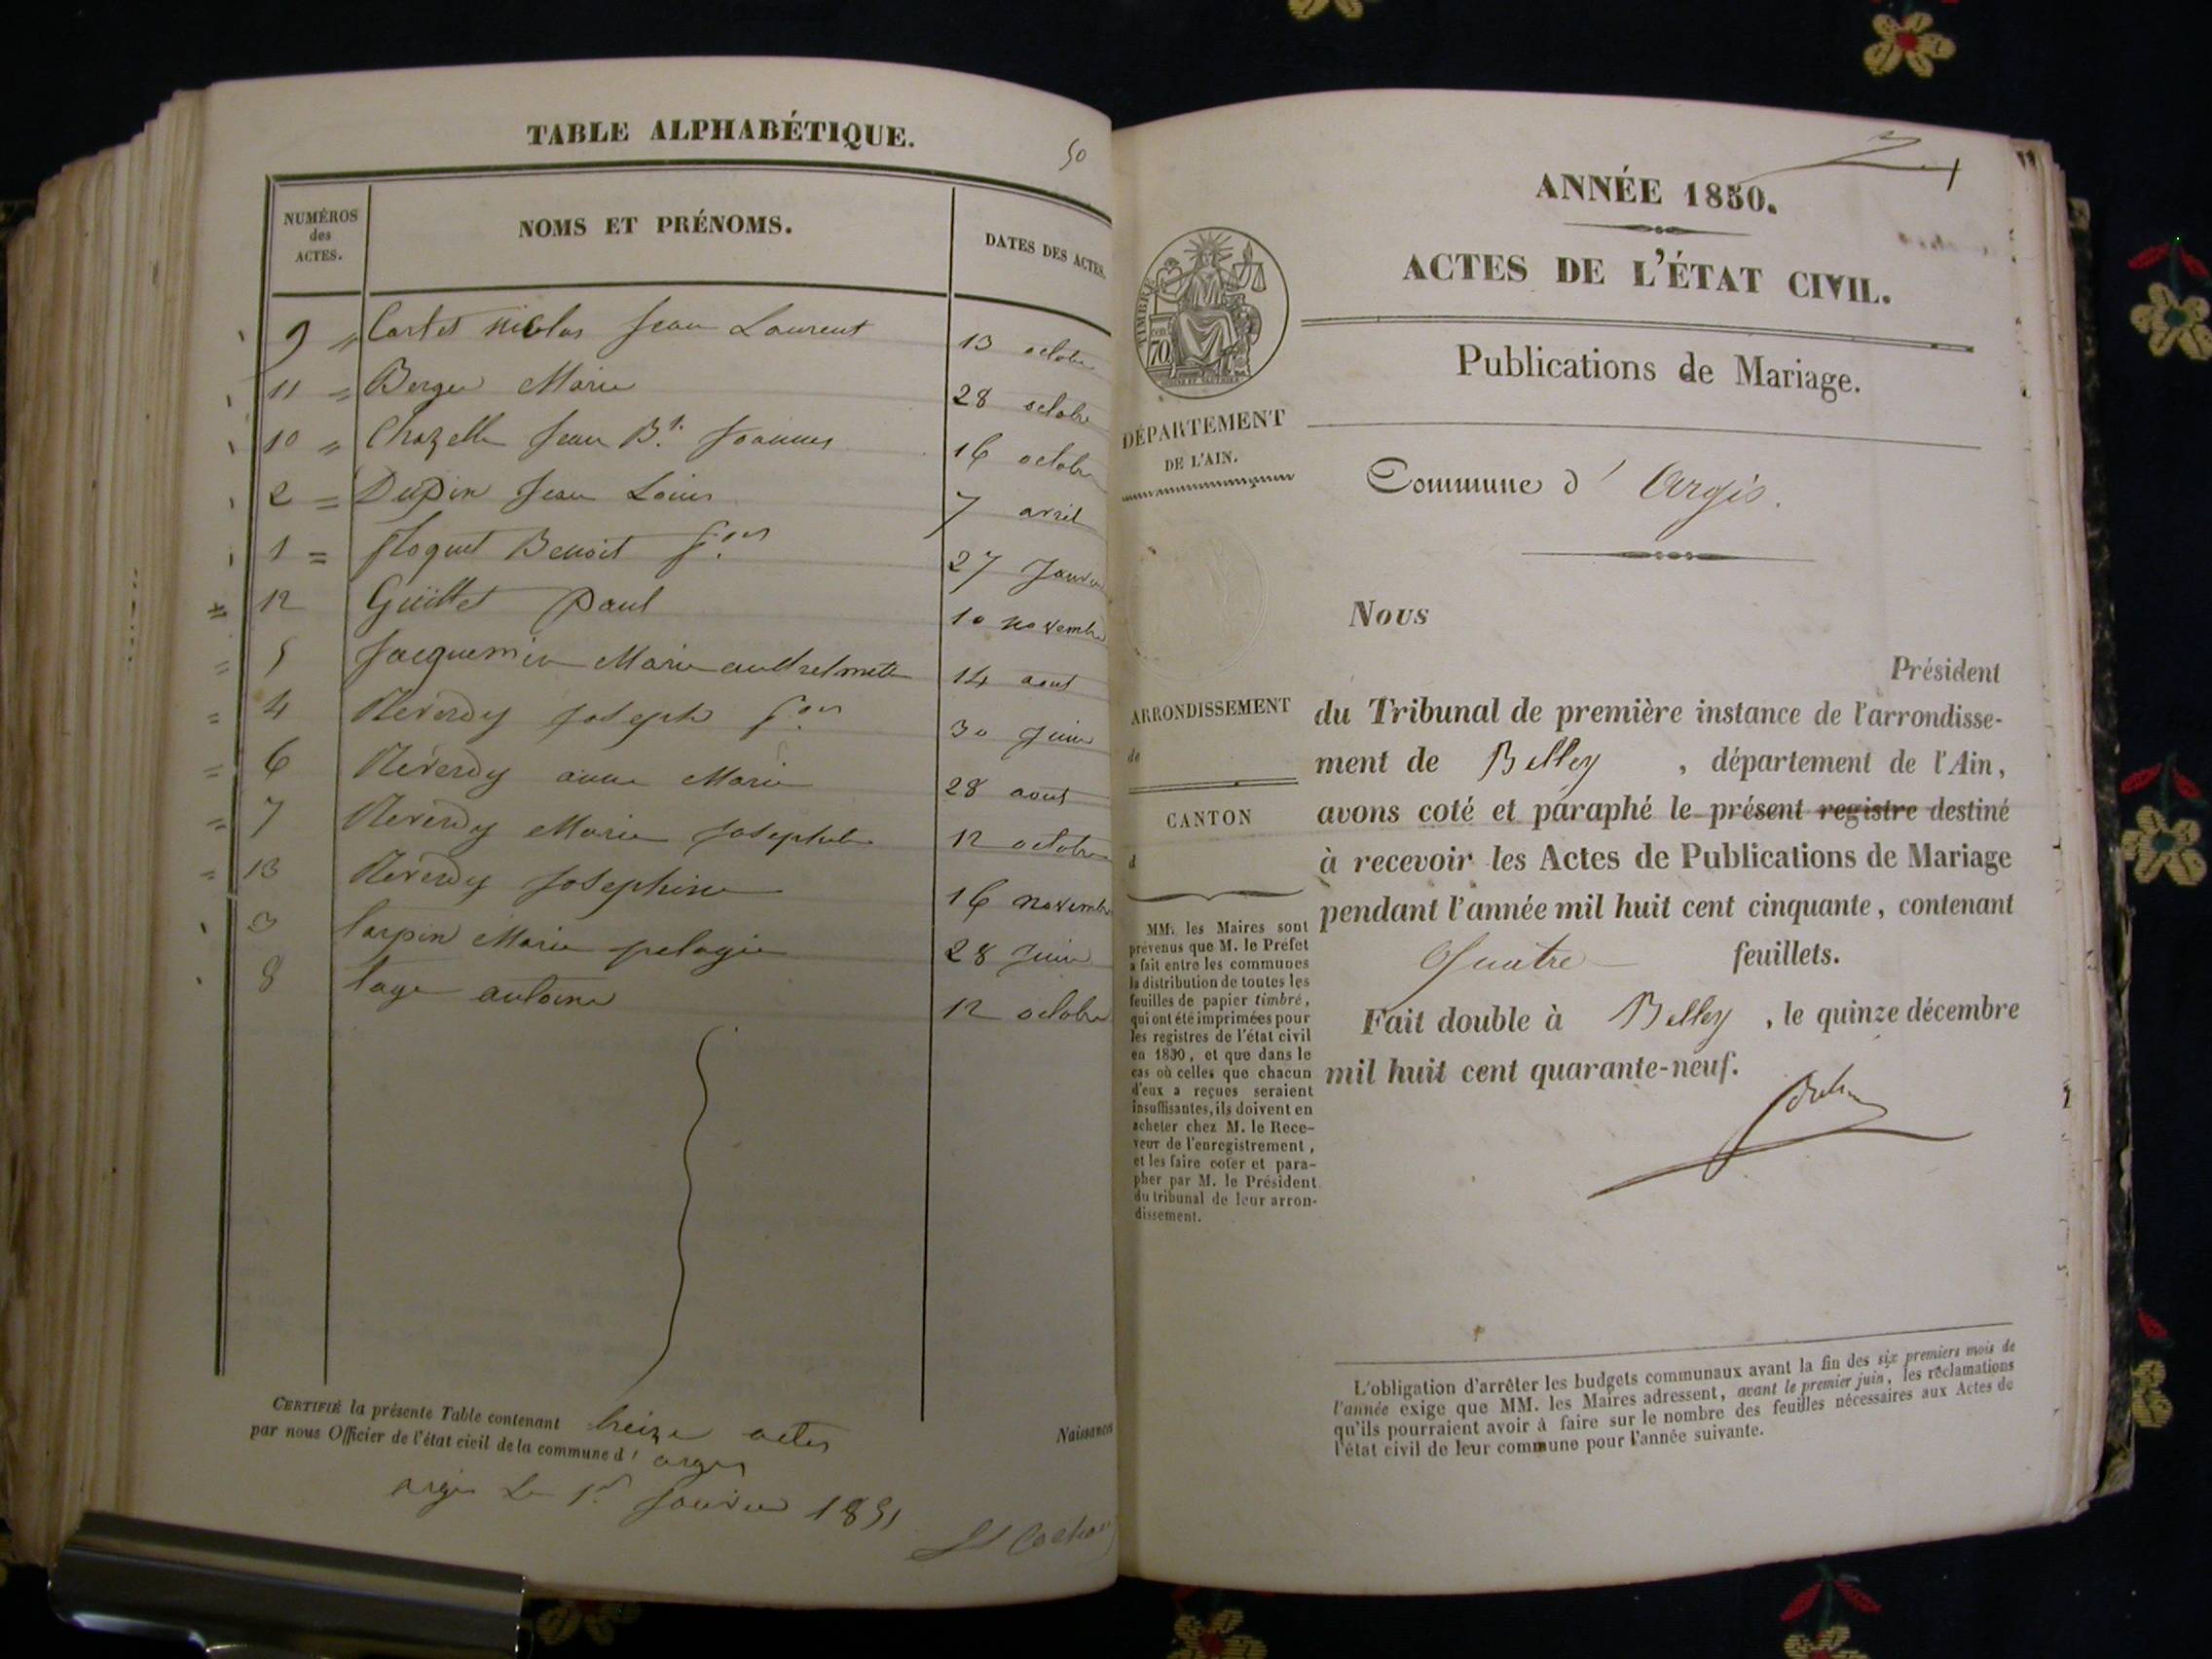 TABLE ALPHABÉTIQUE.
50
NUMÉROS
des
ACTES.
NOMS ET PRÉNOMS.
DATES DES ACTES.
9 " nicolas Jean Laurent 13 octobre
11 = Berger Marie 28 octobre
10 " Chazelle Jean Bte. Joannes 16 octobre
2 = Dupin Jean Louis 7 avril
1 = floquet Benoit fois 27 Janvier
12 Guillet Paul 10 novembre
5 Jacquemin Marie 14 aout
4 Reverdy Joseph fois 30 Juin
6 Réverdy anne Marie 28 aout
7 Reverdy Marie Josephte 12 octobre
13 Reverdy Josephine 16 novembre
3 Marie pelagie 28 Juin
8 antoine 12 octobre
CERTIFIÉ la présente Table contenant treize actes
par nous Officier de l'état civil de la commune d' argis
argis Le 1er Janvier 1851
Naissances
1
ANNÉE 1850.
ACTES DE L'ÉTAT CIVIL.
Publications de Mariage.
TIMBRE
70
DÉPARTEMENT
DE L'AIN.
Commune d' Argis.
Nous
Président
ARRONDISSEMENT
de
CANTON
d
du Tribunal de première instance de l'arrondisse-
ment de Belley , département de l'Ain,
avons coté et paraphé le présent registre destiné
à recevoir les Actes de Publications de Mariage
pendant l'année mil huit cent cinquante, contenant
Quatre feuillets.
Fait double à Belley , le quinze décembre
mil huit cent quarante-neuf.
MM. les Maires sont
prévenus que M. le Préfet
a fait entre les communes
la distribution de toutes les
feuilles de papier timbré,
qui ont été imprimées pour
les registres de l'état civil
en 1850, et que dans le
cas où celles que chacun
d'eux a reçues seraient
insuffisantes, ils doivent en
acheter chez M. le Rece-
veur de l'enregistrement,
et les faire coter et para-
pher par M. le Président
du tribunal de leur arron-
dissement.
L'obligation d'arrêter les budgets communaux avant la fin des six premiers mois de
l'année exige que MM. les Maires adressent, avant le premier juin, les réclamations
qu'ils pourraient avoir à faire sur le nombre des feuilles nécessaires aux Actes de
l'état civil de leur commune pour l'année suivante.